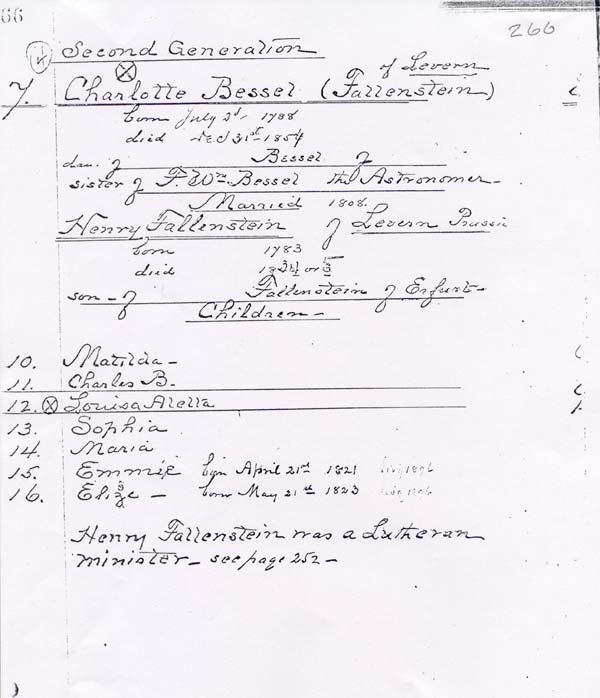 66
266
4 Second Generation
of Levern
7. Charlotte Bessel (Fallenstein)
born July 2d 1788
died Dec 31st 1854
dau. of Bessel of
sister of F. Wm. Bessel the Astronomer
Married 1808.
Henry Fallenstein of Levern Prussia
born 1783
died 1834 or 5
son - of Fallenstein of Erfurt -
Children -
10. Matilda -
11. Charles B.
12. Louisa Aletta
13. Sophia
14. Maria
15. Emmie born April 21st 1821 living 1896
16. Elize - born May 21st 1823 living 1896
Henry Fallenstein was a Lutheran
minister - see page 252 -